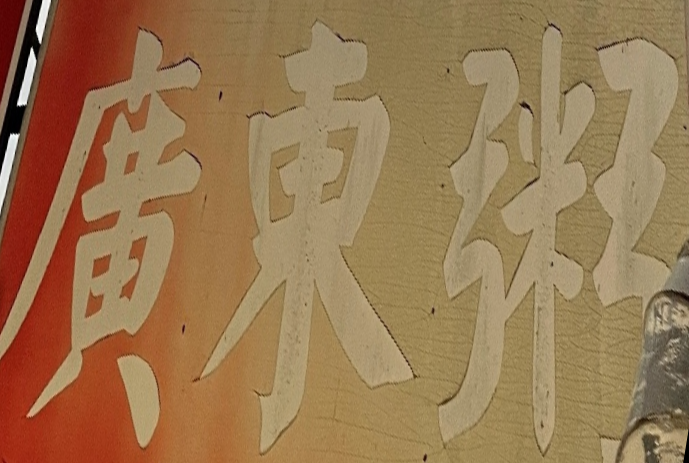 廣東粥